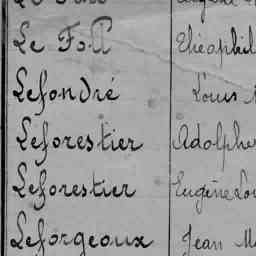 Le Foll
Lefondré Louis
Leforestier Adolphe
Leforestier Eugène
Leforgeoux Jean